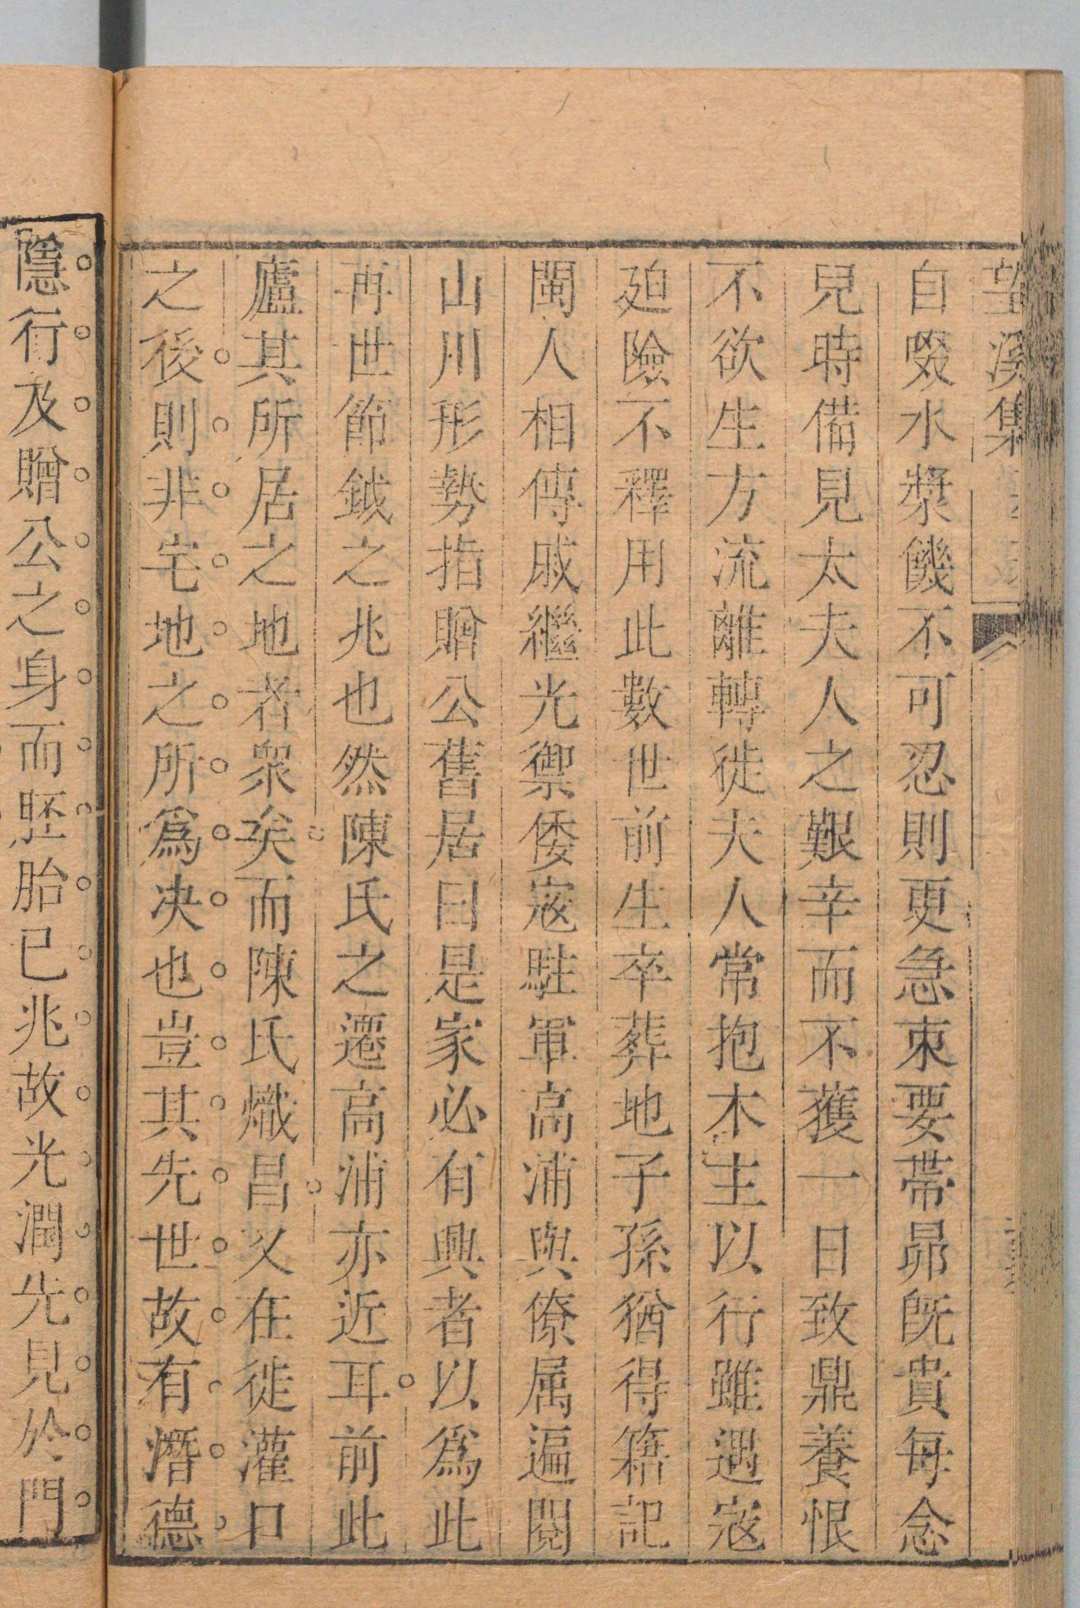 望溪集
自啜水漿饑不可忍則更急束要帶昴旣貴每念
兒時備見太夫人之艱辛而不獲一日致鼎養恨
不欲生方流離轉徙夫人常抱木主以行雖遇寇
廹險不釋用此數世前生卒葬地子孫猶得籍記
閩人相傳戚繼光禦倭寇駐軍高浦與僚属遍閱
山川形勢指贈公舊居曰是家必有興者以爲此
再世節鉞之兆也然陳氏之遷高浦亦近耳前此
廬其所居之地者衆矣而陳氏熾昌乂在徙灌口
之後則非宅地之所爲决也豈其先世故有潛德
隱行及贈公之身而胚胎已兆故光潤先見於門